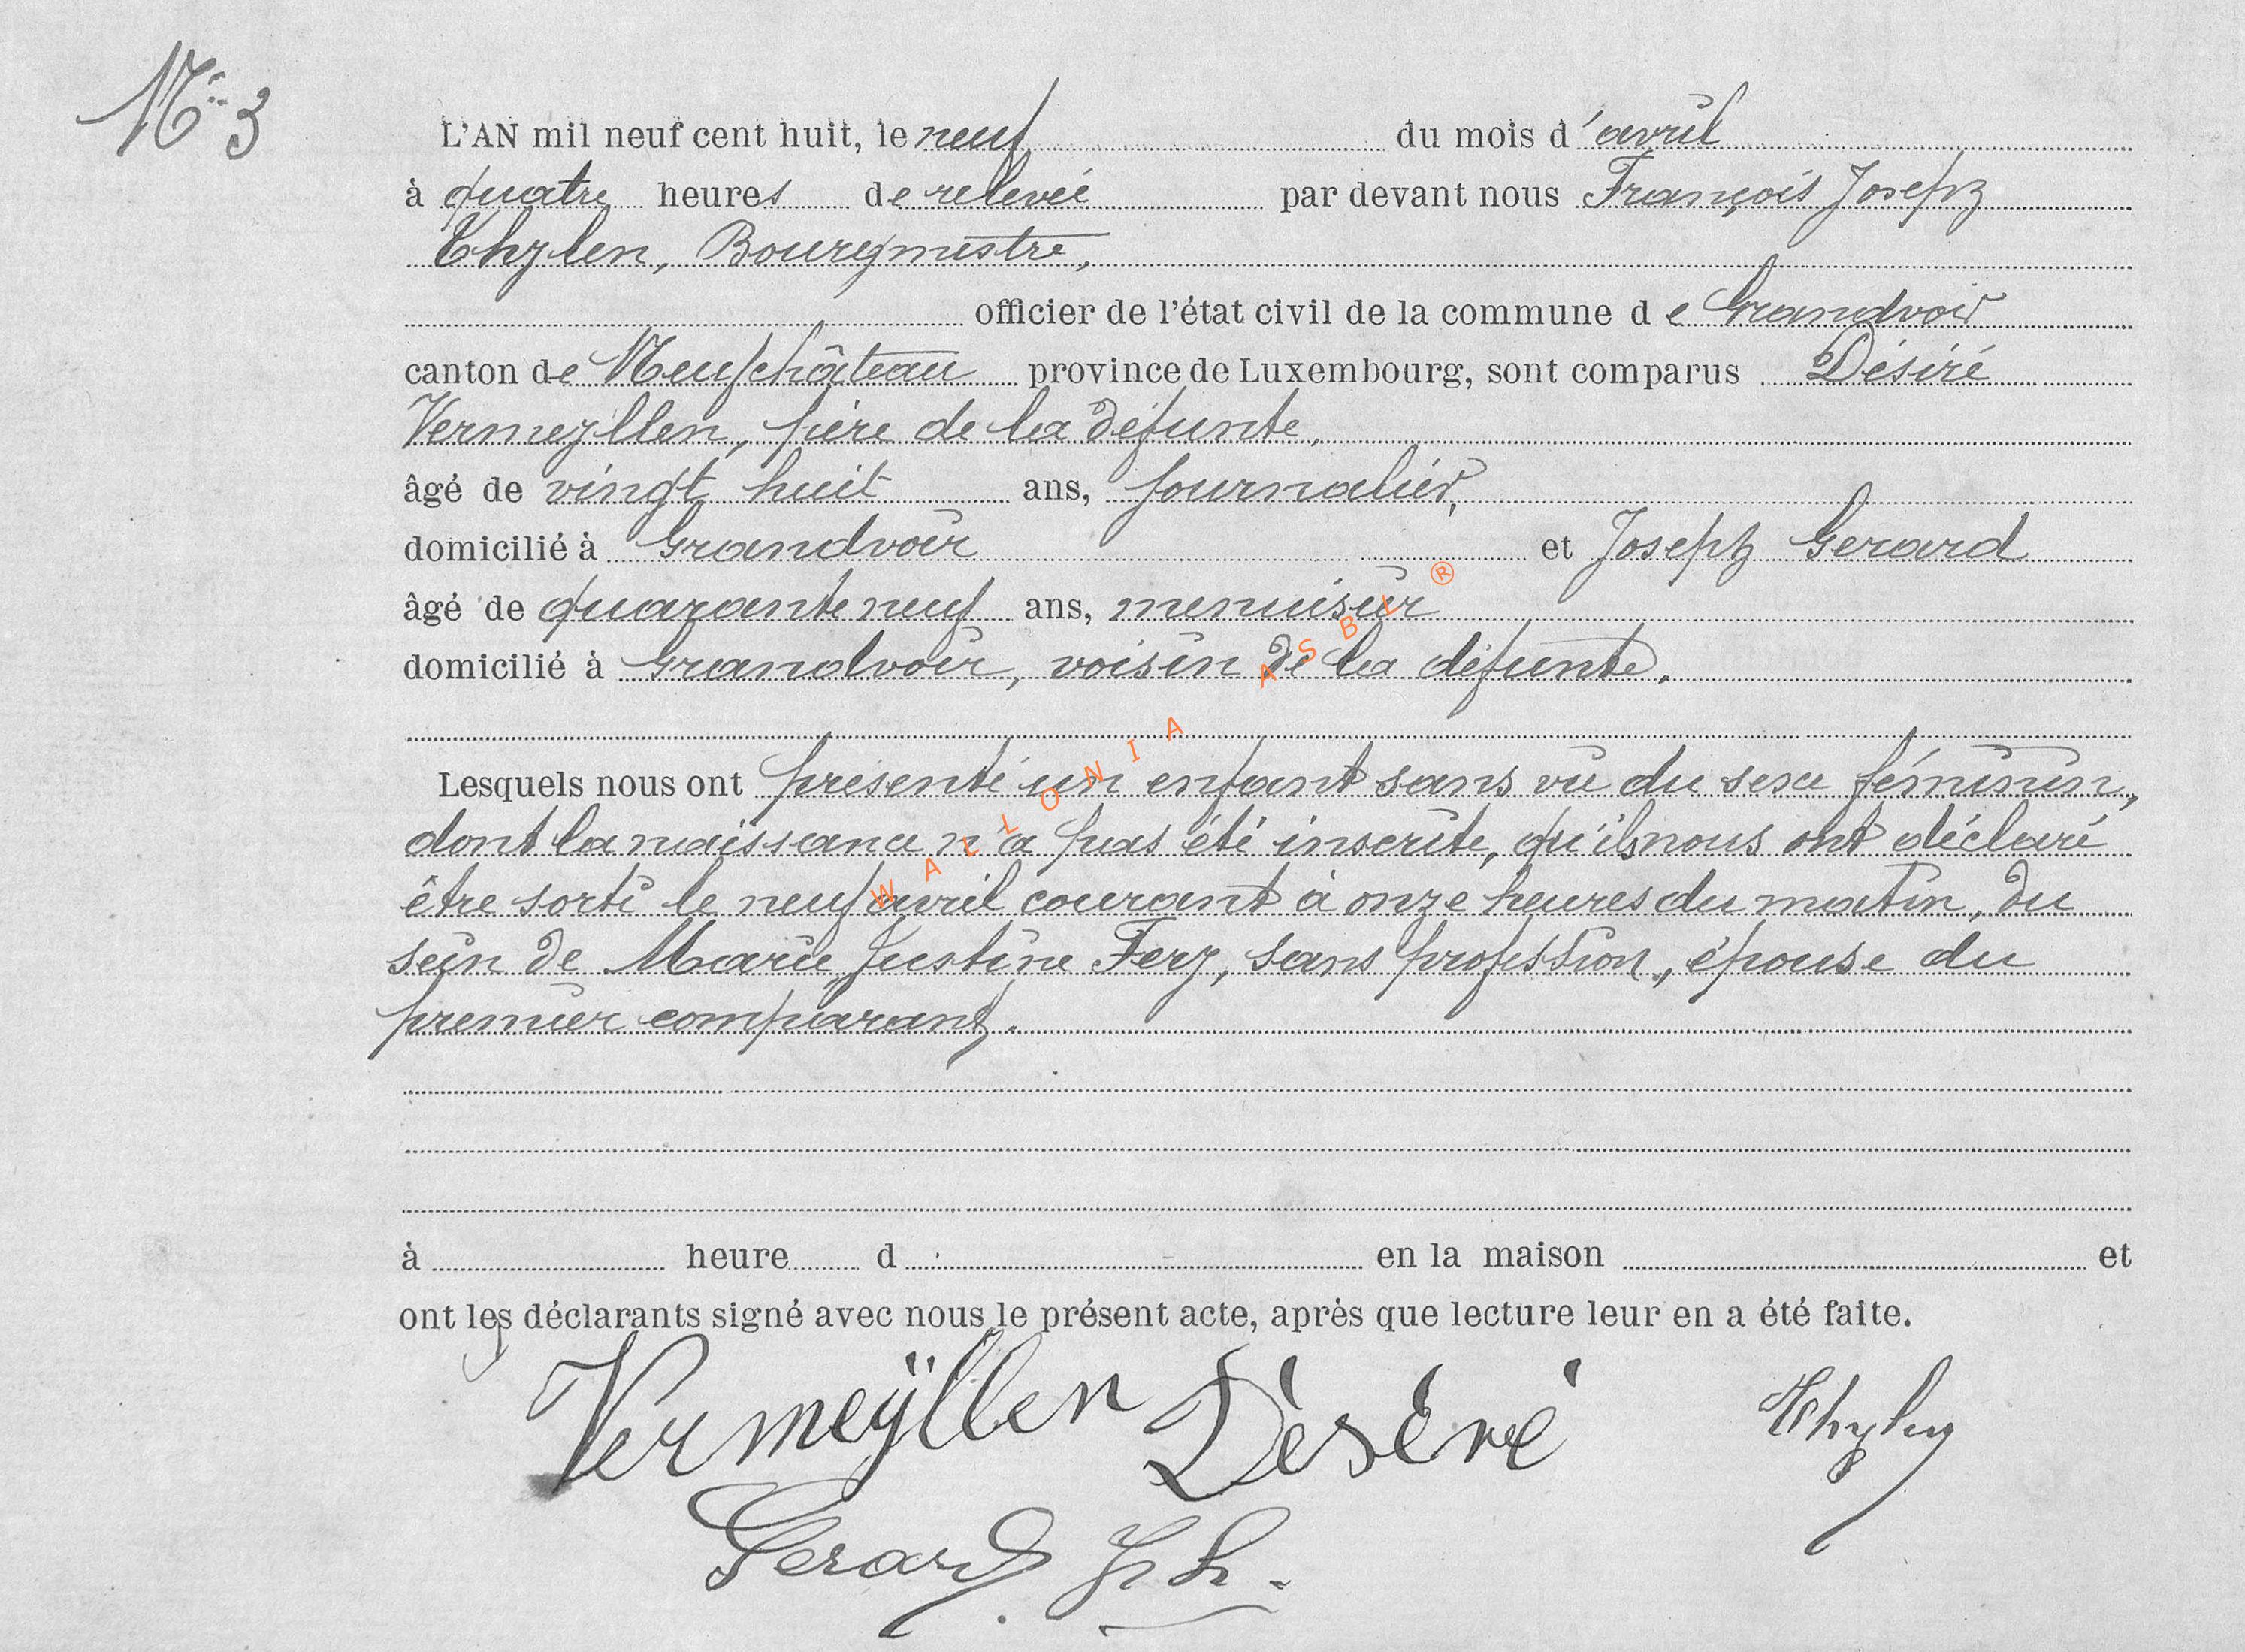 N° 3
L'AN mil neuf cent huit, le neuf du mois d'avril
à quatre heures de relevée par devant nous François Joseph
Thylen, Bourgmestre,
officier de l'état civil de la commune de Grandvoir
canton de Neufchâteau province de Luxembourg, sont comparus Désiré
Vermeyllen, père de la défunte,
âgé de vingt huit ans, journalier,
domicilié à Grandvoir et Joseph Gerard
âgé de quarante neuf ans, menuisier
domicilié à Grandvoir, voisin de la défunte.
Lesquels nous ont présenté un enfant sans vie du sexe féminin,
dont la naissance n'a pas été inscrite, qu'ils nous ont déclaré
être sorti le neuf avril courant à onze heures du matin, du
sein de Marie Justine Fery, sans profession, épouse du
premier comparant.
à heure d en la maison et
ont les déclarants signé avec nous le présent acte, après que lecture leur en a été faite.
Vermeÿllen Dèséré Thylen
Gerard
WALLONIA ASBL ®